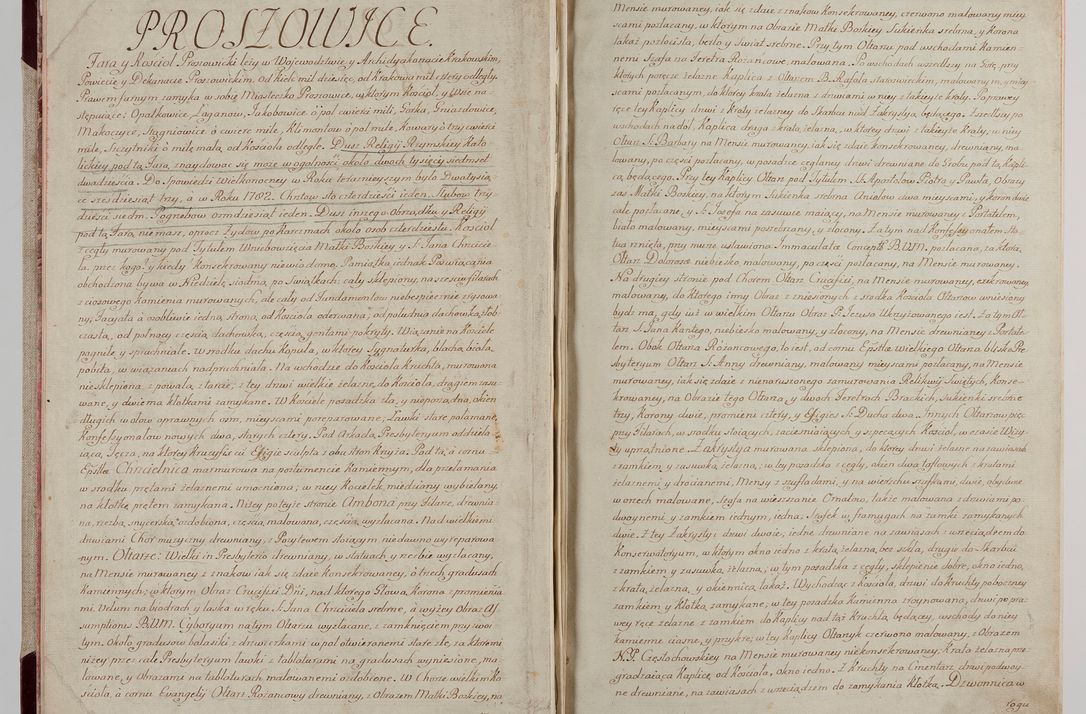 PROSZOWICE.
Fara y Kościoł Proszowicki leży w Woiewodztwie, y Archidyakonacie Krakowskim,
Powiecie y Dekanacie Proszowickim, od Kielc mil dziesięć, od Krakowa mil cztery odległy.
Prawem farnym zamyka w sobie Miasteczko Proszowice, w ktorym Kościoł, y Wsie na-
stępuiące: Opatkowice, Łaganow, Jakobowice o puł cwierci mili, Gorka, Gniazdowice,
Makoczyce, Stagniowice o cwierć mile, Klimontow o puł mile, Kowary o trzy cwierci
mile, Szczytniki o milę małą od Kościoła odległe. Dusz Religij Rzymskiey Kato-
lickiey pod tą Farą, znaydować się może w ogulności około dwoch tysięcy siedmset
dwadzieścia. Do Spowiedzi Wielkonocney w Roku teraznieyszym było Dwa tysią-
ce sześdziesiąt trzy, a w Roku 1782. Chrztow sto czterdzieści ieden, Slubow trzy-
dzieści siedm, Pogrzebow ośmdziesiąt ieden. Dusz innego Obrządku, y Religij
pod tą Farą, niemasz, oprocz Zydow po Karczmach około osob czterdzieście. Kościoł
z cegły murowany pod Tytułem Wniebowzięcia Matki Boskiey y S. Jana Chrzcicie-
la, przez kogo? y kiedy? Konsekrowany niewiadomo, Pamiątka iednak Poswięcania
obchodzona bywa w Niedzielę siodmą, po Swiątkach; cały sklepiony, na szesciu filarach
z ciosowego Kamienia murowanych, ale cały od Fundamentow niebespiecznie zrysowa-
ny; Facyata osobliwie iedną stroną, od Kościoła oderwana; od południa dachowką, słob-
czastą, od pułnocy częścią dachowką, częścią gontami pokryty. Wiązanie na Kościele
pogniłe y spruchniałe. W srodku dachu Kopuła, w ktorey Sygnaturka, blachą białą
pobita, w wiązaniach nadpruchniała. Na wchodzie do Kościoła Kruchta, murowana
niesklepiona, z powałą z tarcic; z tey drzwi wielkie żelazne, do Kościoła, drągiem zasu-
wane, y dwiema kłotkami zamykane. W Kościele posadzka zła, y nieporządna, okien
długich w ołow oprawnych ośm, mieyscami porozarwane, Ławki stare połamane,
Konfessyonałow nowych dwa, starych cztery. Pod Arkadą, Presbyterium oddziela-
iącą, Tęcza, na ktorey Krucyfix ac Effigie sculpta z obu stron Krzyża. Pod tą, a cornu
Epistlæ Chrcielnica marmurowa na postumencie Kamiennym, dla przełamania
w srodku prętami żelaznemi umocniona; w niey Kociełek miedziany wybielany,
na kłotkę prętem zamykana. Nizey po teyże stronie Ambona przy Filarze, drewnia-
na, rzezbą snycerską, ozdobiona, częścią malowana, częścią, wyzłacana. Nad wielkiemi
drzwiami Chor muzyczny drewniany, z Pozytywem stoiącym niedawno wyreparowa-
nym. Ołtarze: Wielki in Presbyterio drewniany, w statuach y rzezbie wyzłacany,
na Mensie murowaney z znakow iak się zdaie Konsekrowaney, o trzech gradusach
Kamiennych; w ktorym Obraz Crucifixi Dni, nad ktorego Głową, Korona z promienia-
mi. Velum na biodrach y laska w ręku S. Jana Chrzciciela srebrne, a wyżey Obraz As-
sumptionis B.V.M. Cyboryum na tym Ołtarzu wyzłacane, z zamknięciem przyzwoi-
tym. Około gradusow balaski z drzwiczkami wpoł otwieranemi stare złe, za ktoremi
niżey przez całe Presbyterium ławki z tablaturami na gradusach wyniesione, ma-
lowane y Obrazami na tablaturach malowanemi ozdobione. W Chorze wielkim Ko-
scioła, a cornu Evangelij Ołtarz Rożancowy drewniany, z Obrazem Matki Boskiey, na
Mensie murowaney, iak się zdaie z znakow Konsekrowaney, czerwono malowany miey-
scami pozłacany, w ktorym na Obrazie Matki Boskiey Sukienka srebrna, y Korona
takaż pozłocista, berło y swiat srebrne. Przy tym Ołtarzu pod wschodami Kamien-
nemi Szafa na Feretra Rożancowe, malowana. Po wschodach wszedłszy na Gorę, przy
ktorych poręcze żelazne Kaplica z Ołtarzem B. Rafała staroswieckim, malowanym, y miey-
scami pozłacanym, do ktorey krata żelazna z drzwiami w niey z takieyże kraty. Po prawey
ręce tey Kaplicy drzwi z kraty żelazney do Skarbcu nad Zakrystyą, będącego. Zszedłszy po
wschodach na doł, Kaplica druga z kratą żelazną, w ktorey drzwi z takieyże Kraty, w niey
Ołtarz S. Barbary na Mensie murowaney, iak się zdaie konsekrowaney, drewniany, ma-
lowany, po części pozłacany, w posadzce ceglaney drzwi drewniane do Grobu pod tą Kapli-
cą, będącego. Przy tey Kaplicy Ołtarz pod Tytułem SS. Apostołow Piotra y Pawła, Obrazy
zas Matki Boskiey, na ktorym Sukienka srebrna Aniołow dwa mieyscami, y koron dwie
całe pozłacane, y S. Jozefa na zasuwie maiący, na Mensie murowaney z Portatelem,
biało malowany, mieyscami posrebrzany, y złocony. Za tym nad Konfessyonałem Sta-
tua rznięta, przy murze ustawiona Immaculatæ Conceptis B.V.M. pozłacana, za ktorą,
Ołtarz Dolorosæ niebiesko malowany, po części pozłacany, na Mensie murowaney.
Na drugiey stronie pod Chorem Ołtarz Crucifixi, na Mensie murowaney, exekrowaney,
malowany, do ktorego inny Obraz z zniesionych z srodka Kościoła Ołtarzow wniesiony
bydz ma, gdy iuż w wielkim Ołtarzu Obraz P. Jezusa Ukrzyżowanego iest. Za tym Oł-
tarz S. Jana Kantego, niebiesko malowany, y złocony, na Mensie drewnianey z Portate-
lem. Obok Ołtarza Rożancowego, to iest, od cornu Epistlæ wielkiego Ołtarza blisko Pre-
sbyterium Ołtarz S. Anny drewniany, malowany mieyscami pozłacany, na Mensie
murowaney, iak się zdaie z nienaruszonego zamurowania Relikwij Swiętych, Konse-
krowaney, na Obrazie tego Ołtarza, y dwoch Feretrach Brackich, Sukienki srebrne
trzy, Korony dwie, promieni cztery, y Effigies S. Ducha dwa. Innych Ołtarzow pięć
przy Filarach, w srodku stoiących, zacieśniaiących y szpecących Kościoł, w czasie Wizy-
ty uprzątnione. Zakrystya murowana sklepiona, do ktorey drzwi żelazne na zawiasach
z zamkiem, y zasuwką żelazną; w tey posadzka z cegły, okien dwa taflowych z kratami
żelaznemi, y drocianemi, Mensy z szufladami, y na wierzchu szafkami, dwie, obydwie
w orzech malowane, Szafa na wieszanie Ornatow, także malowana z drzwiami po-
dwoynemi, y zamkiem iednym, iedna. Szafek w framugach na zamki zamykanych
dwie. Z tey Zakrystyi drzwi dwoie, iedne drewniane na zawiasach z wrzeciądzem do
Konserwatoryum, w ktorym okno iedno z kratą żelazną, bez szkła, drugie do Skarbcu
z zamkiem, y zasuwką żelazną; w tym posadzka z cegły, sklepienie dobre, okno iedno,
z kratą żelazną, y okiennicą takąż. Wychodząc z Kościoła, drzwi do Kruchty poboczney
zamkiem, y Kłotką zamykane; w tey posadzka Kamienna zruynowana, drzwi po pra-
wey ręce żelazne z zamkiem do Kaplicy nad tąż Kruchtą, będącey, wschody do niey
kamienne ciasne, y przykre; w tey Kaplicy Ołtarzyk czerwono malowany, z Obrazem
N.P. Częstochowskiey na Mensie murowaney niekonsekrowaney, Krata żelazna prze-
gradzaiąca Kaplicę od Kościoła, okno iedno. Z Kruchty na Cmentarz drzwi podwoy-
ne drewniane, na zawiasach z wrzeciądzem do zamykania Kłotką. Dzwonnica w
rogu